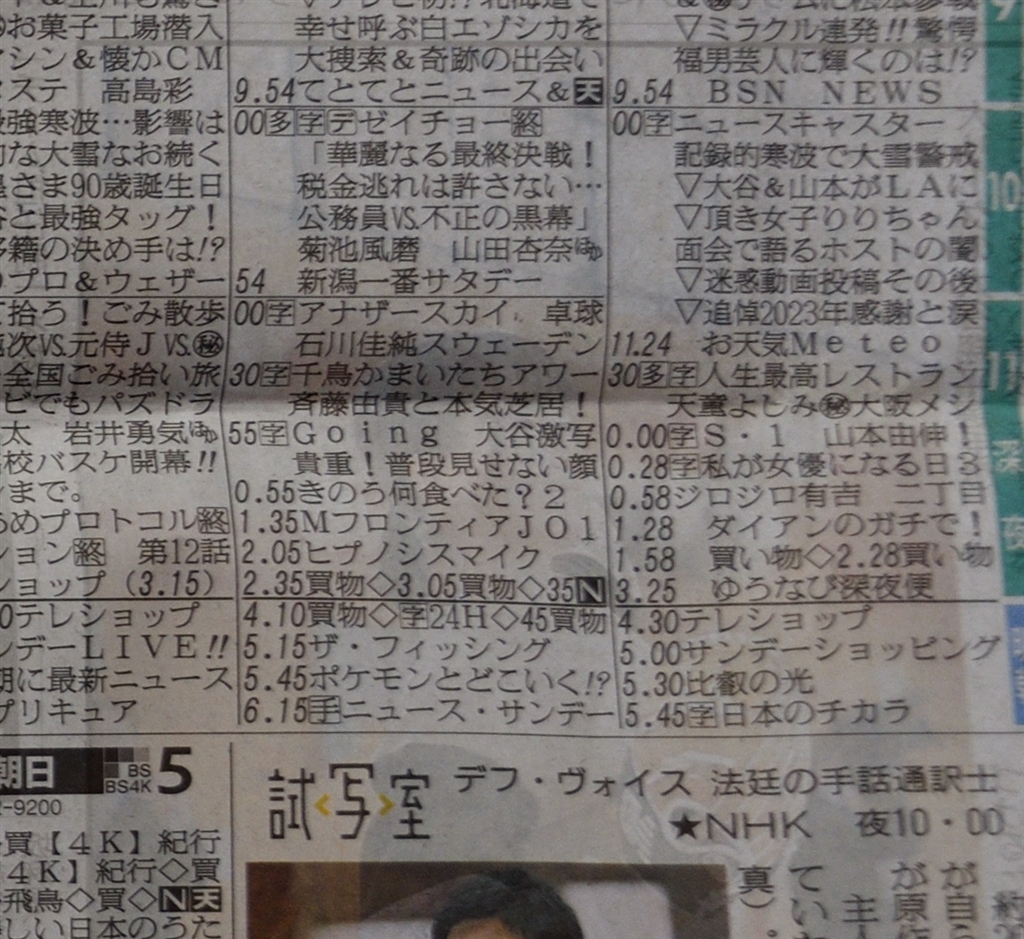 お菓子工場潜入
シン&懐かCM
ステ 高島彩
強寒波…影響は
な大雪なお続く
さま90歳誕生日
と最強タッグ!
籍の決め手は!?
プロ&ウェザー
拾う!ごみ散歩
次VS.元侍JVS.㊙
全国ごみ拾い旅
ビでもパズドラ
太 岩井勇気ほか
校バスケ開幕!!
ンまで。
めプロトコル終
ション終 第12話
ショップ(3.15)
0テレショップ
デーLIVE!!
に最新ニュース
プリキュア
幸せ呼ぶ白エゾシカを
大捜索&奇跡の出会い
9.54てとてとニュース&天
00多字デゼイチョー終
「華麗なる最終決戦!
税金逃れは許さない…
公務員VS.不正の黒幕」
菊池風磨 山田杏奈ほか
54 新潟一番サタデー
00字アナザースカイ 卓球
石川佳純スウェーデン
30字千鳥かまいたちアワー
斉藤由貴と本気芝居!
55字Going 大谷激写
貴重!普段見せない顔
0.55きのう何食べた?2
1.35MフロンティアJO1
2.05ヒプノシスマイク
2.35買物◇3.05買物◇35N
4.10買物◇字24H◇45買物
5.15ザ・フィッシング
5.45ポケモンとどこいく!?
6.15手ニュース・サンデー
▽ミラクル連発!!驚愕
福男芸人に輝くのは!?
9.54 BSN NEWS
00字ニュースキャスター
記録的寒波で大雪警戒
▽大谷&山本がLAに
▽頂き女子りりちゃん
面会で語るホストの闇
▽迷惑動画投稿その後
▽追悼2023年感謝と涙
11.24 お天気Meteo
30多字人生最高レストラン
天童よしみ㊙大阪メシ
0.00字S・1 山本由伸!
0.28字私が女優になる日3
0.58ジロジロ有吉 二丁目
1.28 ダイアンのガチで!
1.58 買い物◇2.28買い物
3.25 ゆうなび深夜便
4.30テレショップ
5.00サンデーショッピング
5.30比叡の光
5.45字日本のチカラ
9
10
11
深
夜
朝日 BS BS4K 5
-9200
買【4K】紀行
4K】紀行◇買
飛鳥◇買◇N天
しい日本のうた
試写室
デフ・ヴォイス 法廷の手話通訳士
★NHK 夜10・00
が自ら
が原作
主人
てい
真)。